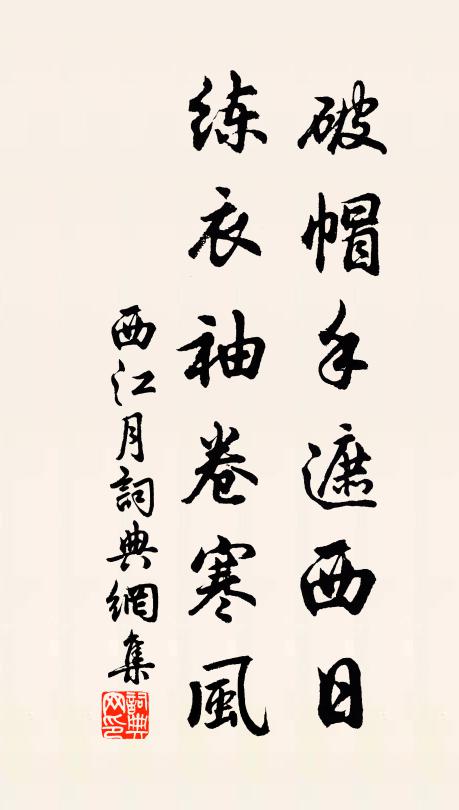 破帽手遮西日
练衣袖卷寒風
西江月詞典網集
詞典网印